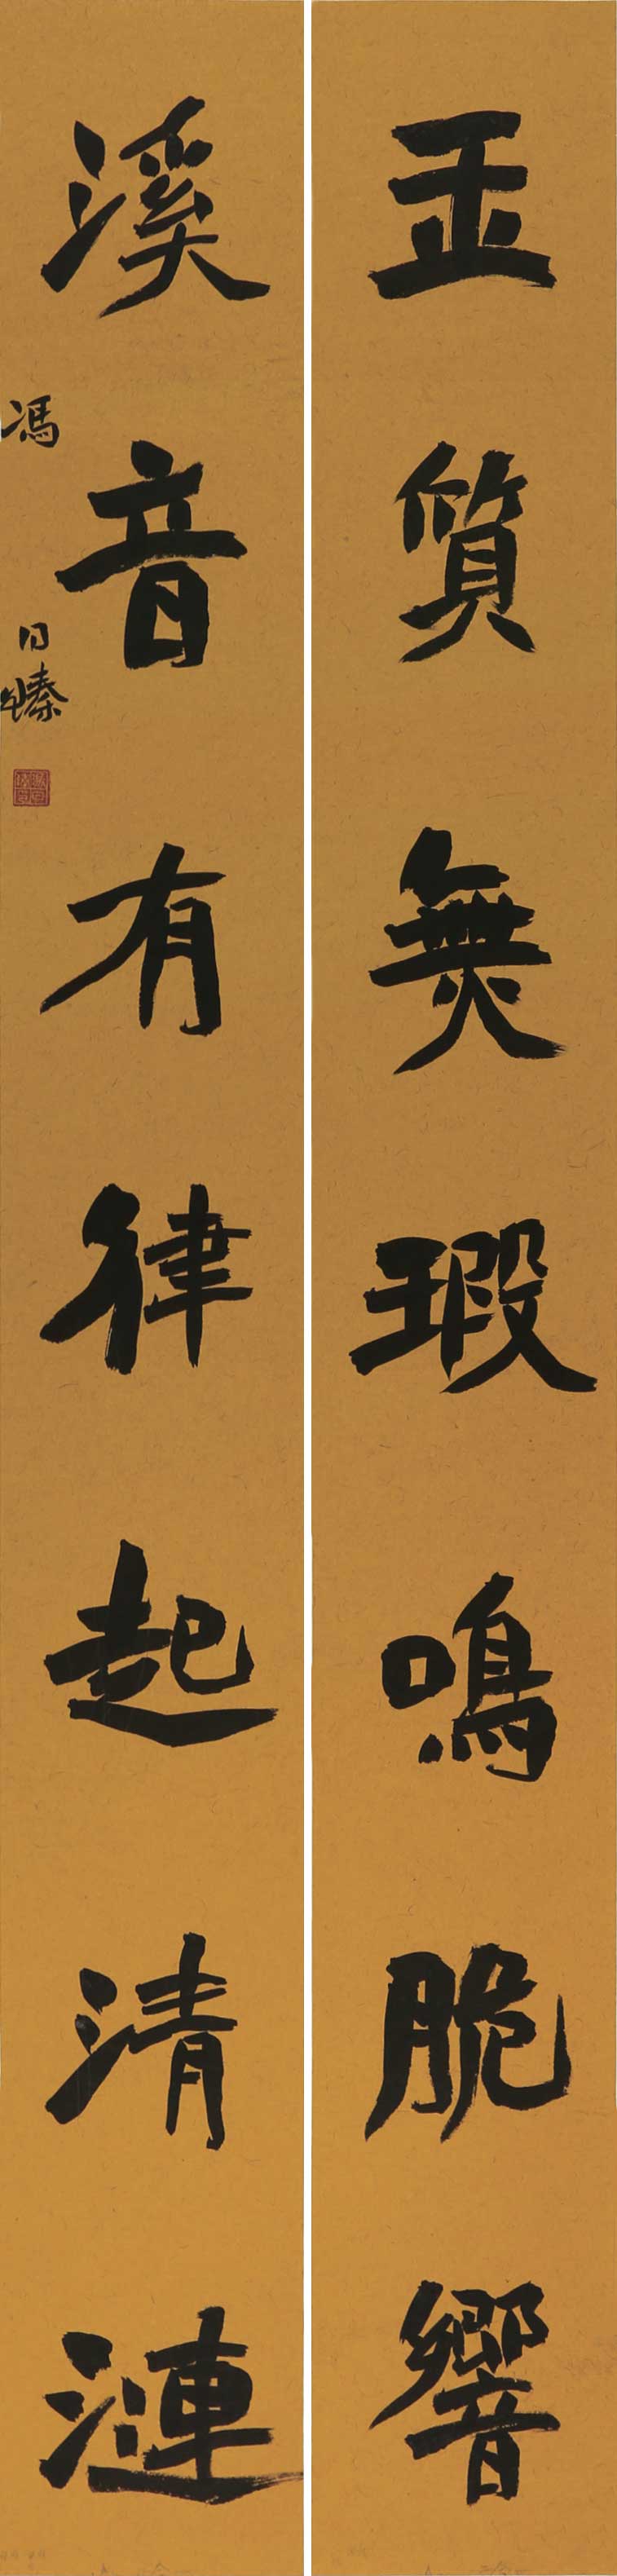 玉質無瑕鳴脆響
溪音有律起清漣
馮